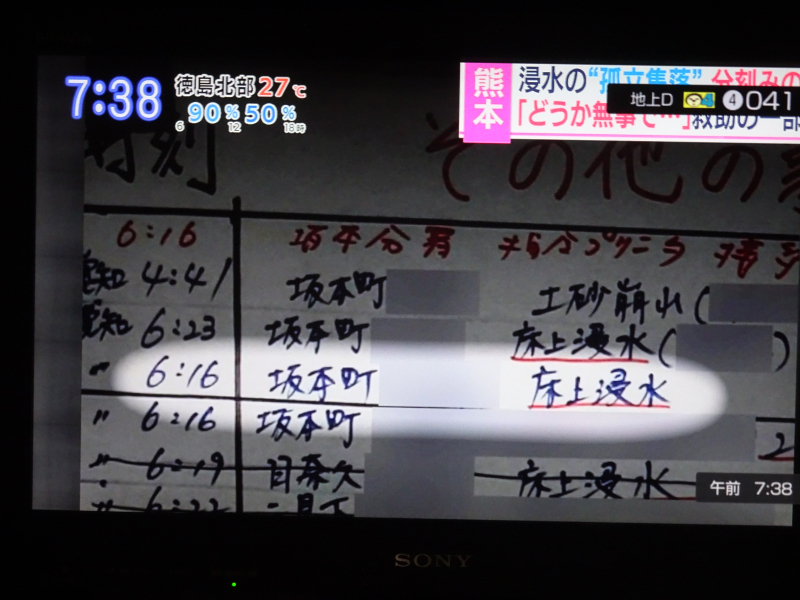 7:38
徳島北部 27℃
90% 50%
6 12 18時
熊本
浸水の“孤立集落”分刻みの
「どうか無事で…」救助の一部
地上D 4 041
時刻 その他の
6:16 坂本分署
覚知 4:41 坂本町 土砂崩出(
覚知 6:23 坂本町 床上浸水( )
〃 6:16 坂本町 床上浸水
〃 6:16 坂本町 2
〃 6:19 日奈久 床上浸水
〃 6:22
午前 7:38
SONY